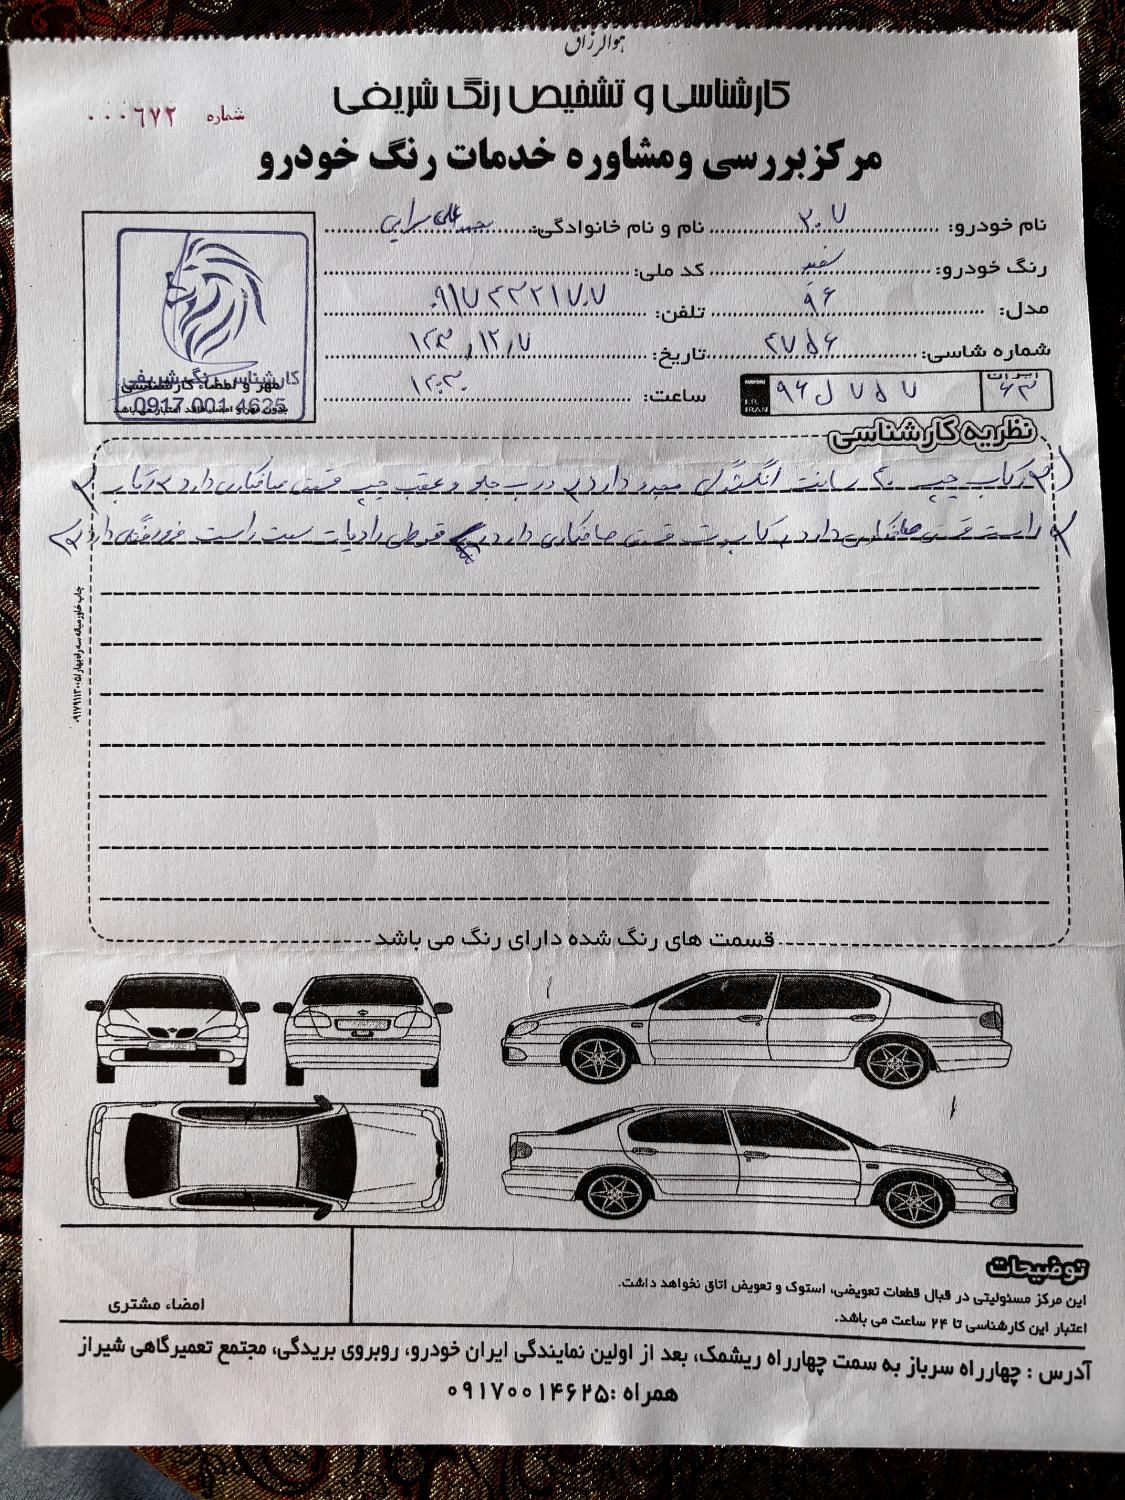 هوالرزاق
کارشناسی و تشخیص رنگ شریفی
شماره ۰۰۰۶۷۲
مرکز بررسی ومشاوره خدمات رنگ خودرو
نام خودرو: ۲۰۷ نام و نام خانوادگی:
رنگ خودرو: سفید کد ملی:
مدل: ۹۶ تلفن:
شماره شاسی: ۲۷۵۶ تاریخ:
ساعت:
ایران ۶۳ ۹۶ ل ۷۵۷
I.R. IRAN
کارشناسی رنگ شریفی
مهر و امضاء کارشناسی
0917 001 4625
بدون مهر و امضاء فاقد اعتبار می باشد
نظریه کارشناسی
رکاب چپ ۲۰ سانت رنگ دارد درب جلو و عقب چپ قسمتی صافکاری دارد رکاب
راست قسمتی صافکاری دارد قسمتی صافکاری دارد رادیات سمت راست فرورفتگی دارد
قسمت های رنگ شده دارای رنگ می باشد
توضیحات
این مرکز مسئولیتی در قبال قطعات تعویضی، استوک و تعویض اتاق نخواهد داشت.
اعتبار این کارشناسی تا ۲۴ ساعت می باشد.
امضاء مشتری
آدرس : چهارراه سرباز به سمت چهارراه ریشمک، بعد از اولین نمایندگی ایران خودرو، روبروی بریدگی، مجتمع تعمیرگاهی شیراز
همراه :۰۹۱۷۰۰۱۴۶۲۵